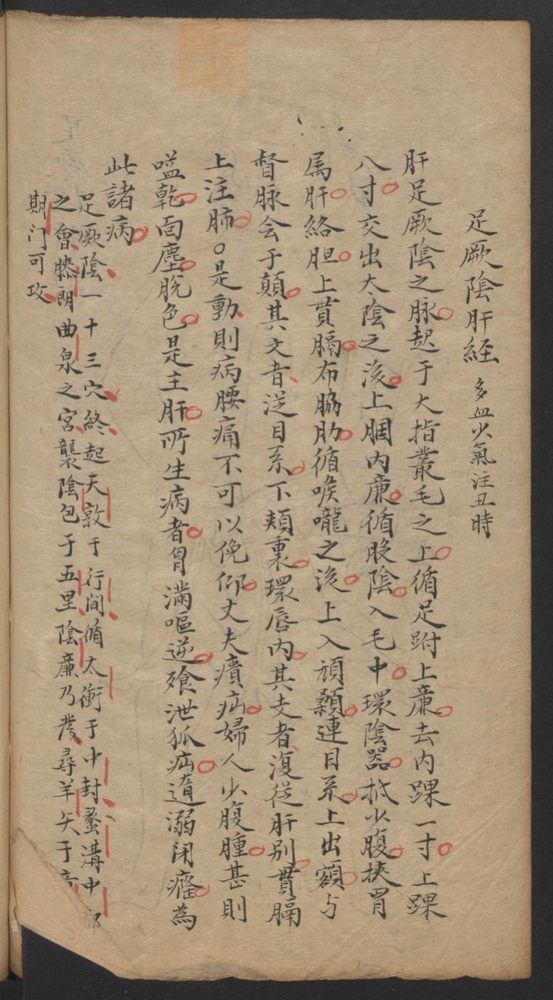 足厥陰肝經 多血少氣注丑時
肝足厥陰之脉起于大指叢毛之上循足跗上廉去内踝一寸上踝
八寸交出太陰之後上膕内廉循股陰入毛中環陰器抵少腹挾胃
属肝絡胆上貫膈布脇肋循喉嚨之後上入頏顙連目系上出額与
督脉会于顛其支者從目系下頰裏環唇内其支者復從肝別貫膈
上注肺○是動則病腰痛不可以俛仰丈夫㿉疝婦人少腹腫甚則
嗌乾面塵脫色是主肝所生病者胃滿嘔逆飧泄狐疝遺溺閉癃為
此諸病
足厥陰一十三穴終起大敦于行間循太衝于中封蠡溝中
之會膝朗曲泉之宮襲陰包于五里陰廉乃發尋羊矢于
期门可攻